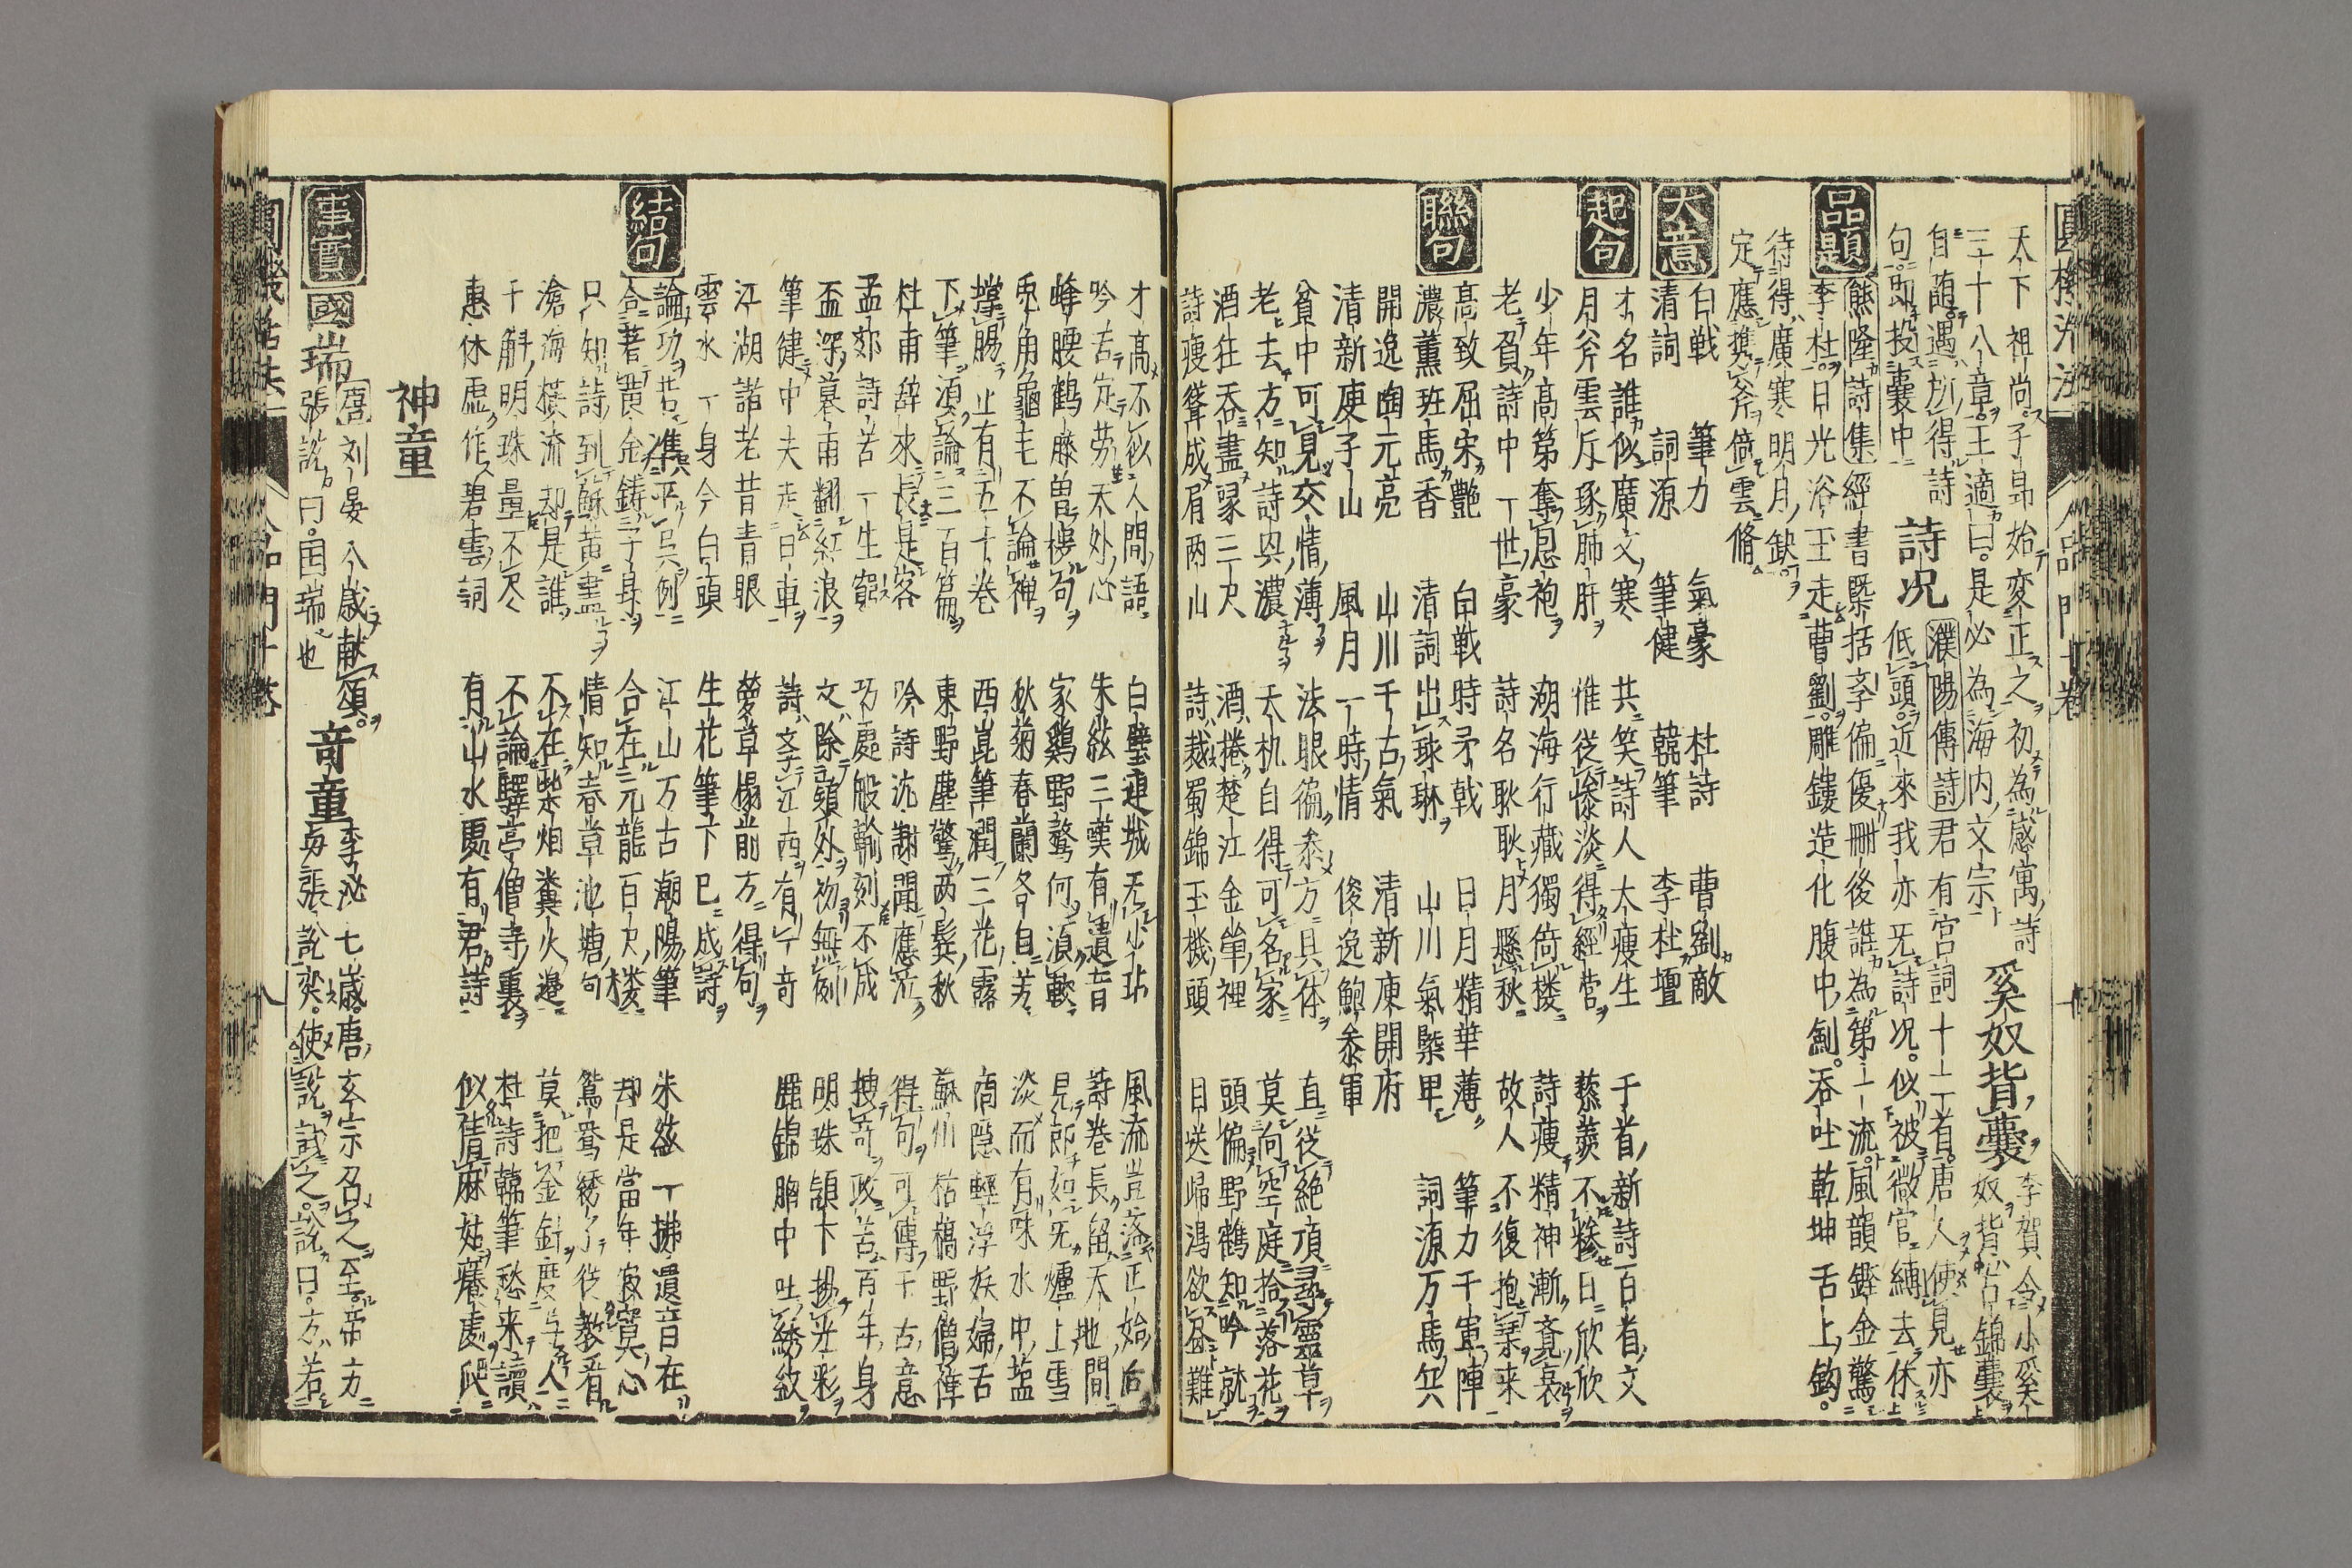 天下祖尚子昂始変正之初為感寓詩 奚奴背囊 李賀令小奚
三十八章王適曰是必為海内文宗 奴背古錦囊
自随遇所得詩 詩况 濮陽傳詩 君有宮詞十一首唐人使見亦
句即投囊中 低頭近來我亦无詩况似被微官縛去休
品題 熊隆詩集 經書槩括李偏優冊後誰為第一流風韻鏗金驚
李杜日光浴玉走曹劉雕鏤造化腹中劍吞吐乾坤舌上鈎
待得廣寒明月缺
定應携斧倚雲脩
大意 白戦 筆力 氣豪 杜詩 曹劉敵
清詞 詞源 筆健 韓筆 李杜壇
起句 才名誰似廣文寒 共笑詩人太瘦生 千首新詩百首文
月斧雲斤琢肺肝 惟従惨淡得經営 藜羮不糝日欣欣
少年高第奪袍 湖海行藏獨倚楼 詩痩精神漸覚衰
老負詩中一世豪 詩名耿耿月懸秋 故人不復抱琹来
聯句 高致屈宋艶 白戦時矛戟 日月精華薄 筆力千軍陣
濃薫班馬香 清詞出琳 山川氣槩甲 詞源万馬兵
開逸陶元亮 山川千古氣 清新庾開府
清新庾子山 風月一時情 俊逸鮑参軍
貧中可見交情薄 法眼徧参方具体 直従絶頂尋靈草
老去方知詩興濃 天机自得可名家 莫向空庭拾落花
酒狂吞盡三尺 酒捲楚江金掌裡 頭偏野鶴知吟就
詩痩聳成肩両山 詩裁蜀錦玉機頭 目送帰鴻欲畫難
才高不似人間語 白璧連城无少玷 風流豈落正始后
吟苦定労天外心 朱絃三嘆有遺音 詩卷長留天地間
蜂腰鶴膝曽楼句 家鷄野鶩何須軟 見郎如无爐上雪
兎角龜毛不論禅 秋菊春蘭各自芳 淡而有味水中塩
撑腸止有五千卷 西崑筆潤三花露 商隠軽浮妖婦舌
下筆須論三百篇 東野塵驚両鬂秋 蘇州枯槁野僧禅
杜甫辞來長是客 吟詩沈謝聞應泣 得句可傳千古意
孟郊詩苦一生窮 巧處般輸刻不成 捜奇政苦百年身
盃深墓雨翻紅浪 文除頚外初無例 明珠頷下揚光彩
筆健中天走日車 詩李江西有一奇 蜀錦胸中吐綉紋
江湖諸老昔青眼 夢草榻前方得句
雲水一身今白頭 生花筆下已成詩
結句 論功若準平呉例 江山万古潮陽筆 朱絃一拂遺音在
合著黄金鋳子身 合在元龍百尺楼 却是當年寂寞心
只知詩到蘇黄盡 情知春草池塘句 鴛鴦綉了従教看
滄海横流却是誰 不在柴烟糞火邊 莫把金針度与人
千斛明珠量不尽 不論驛亭僧寺裏 杜詩韓筆愁来讀
恵休虚作碧雲詞 有山水處有君詩 似倩麻姑癢處爬
神童
事實 國瑞 唐 刘晏八歳献頌 奇童 李泌七歳唐玄宗召之至帝方
張説曰国瑞也 与張説奕使説試之説曰方若